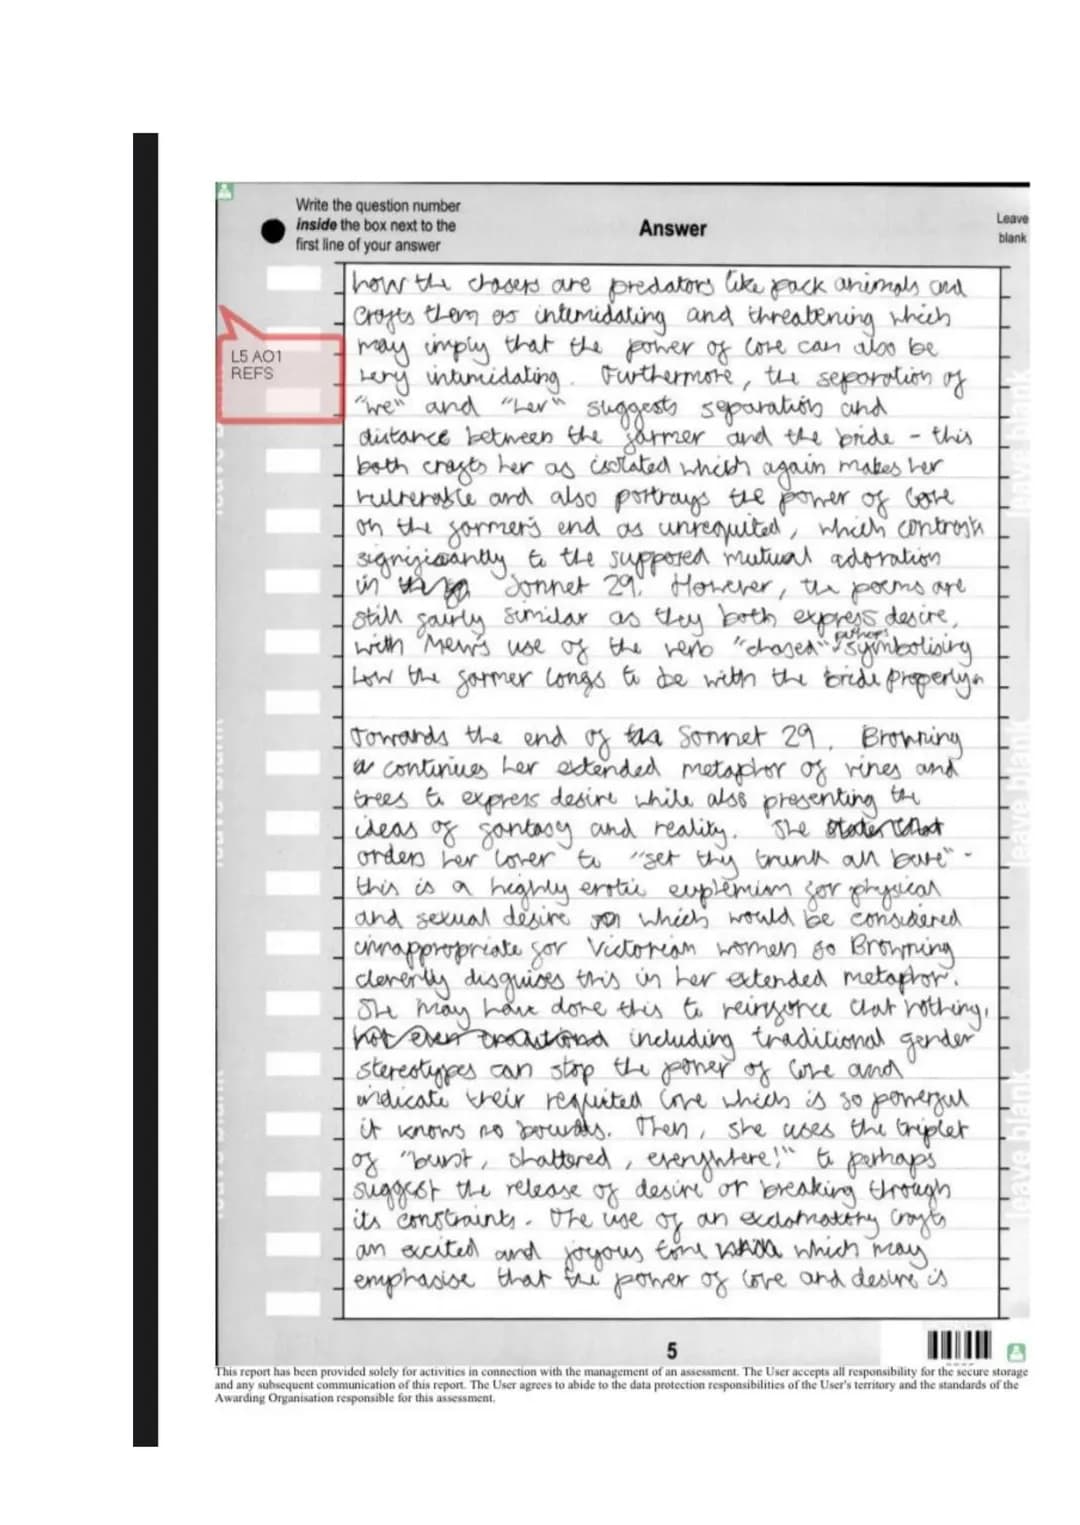 Write the question number
inside the box next to the
first line of your answer
Answer
Leave
blank
L5 AO1
REFS
how the chasers are predators like pack animals and
crafts them as intimidating and threatening which
may imply that the power of love can also be
very intimidating. Furthermore, the separation of
"we" and "her" suggests separation and
distance between the farmer and the bride - this
both crafts her as isolated which again makes her
vulnerable and also portrays the power of love
on the farmer's end as unrequited, which contrasts
significantly to the supposed mutual adoration
in Sonnet 29. However, the poems are
still fairly similar as they both express desire,
with Mew's use of the verb "chased" perhaps symbolising
how the farmer longs to be with the bride properly.
Towards the end of Sonnet 29, Browning
continues her extended metaphor of vines and
trees to express desire while also presenting the
ideas of fantasy and reality. She states that
orders her lover to "set thy trunk all bare" -
this is a highly erotic euphemism for physical
and sexual desire which would be considered
innappropriate for Victorian women so Browning
cleverly disguises this in her extended metaphor.
She may have done this to reinforce that nothing,
not even traditional including traditional gender
stereotypes can stop the power of love and
indicate their requited love which is so powerful
it knows no bounds. Then, she uses the triplet
of "burst, shattered, everywhere!" to perhaps
suggest the release of desire or breaking through
its constraints. The use of an exclamatory crafts
an excited and joyous tone which may
emphasise that the power of love and desire is
5
This report has been provided solely for activities in connection with the management of an assessment. The User accepts all responsibility for the secure storage
and any subsequent communication of this report. The User agrees to abide to the data protection responsibilities of the User's territory and the standards of the
Awarding Organisation responsible for this assessment.
leave blank
leave blank
leave blank